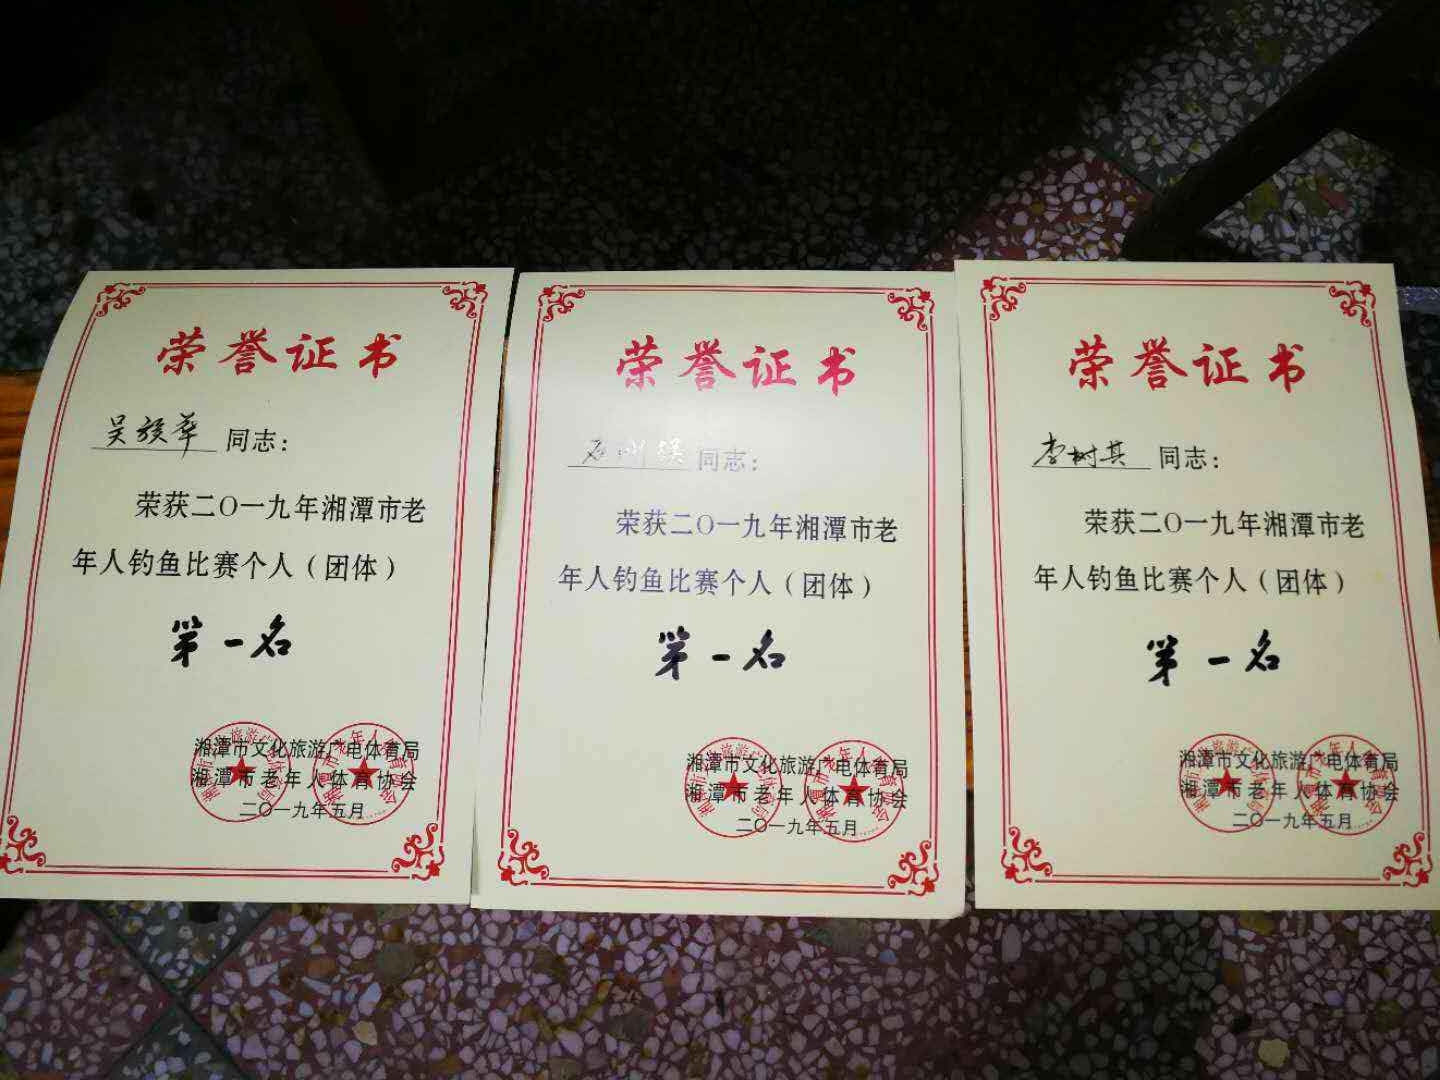 荣誉证书
吴 同志：
荣获二〇一九年湘潭市老
年人钓鱼比赛个人（团体）
第一名
湘潭市文化旅游广电体育局
湘潭市老年人体育协会
二〇一九年五月
荣誉证书
同志：
荣获二〇一九年湘潭市老
年人钓鱼比赛个人（团体）
第一名
湘潭市文化旅游广电体育局
湘潭市老年人体育协会
二〇一九年五月
荣誉证书
李树其 同志：
荣获二〇一九年湘潭市老
年人钓鱼比赛个人（团体）
第一名
湘潭市文化旅游广电体育局
湘潭市老年人体育协会
二〇一九年五月